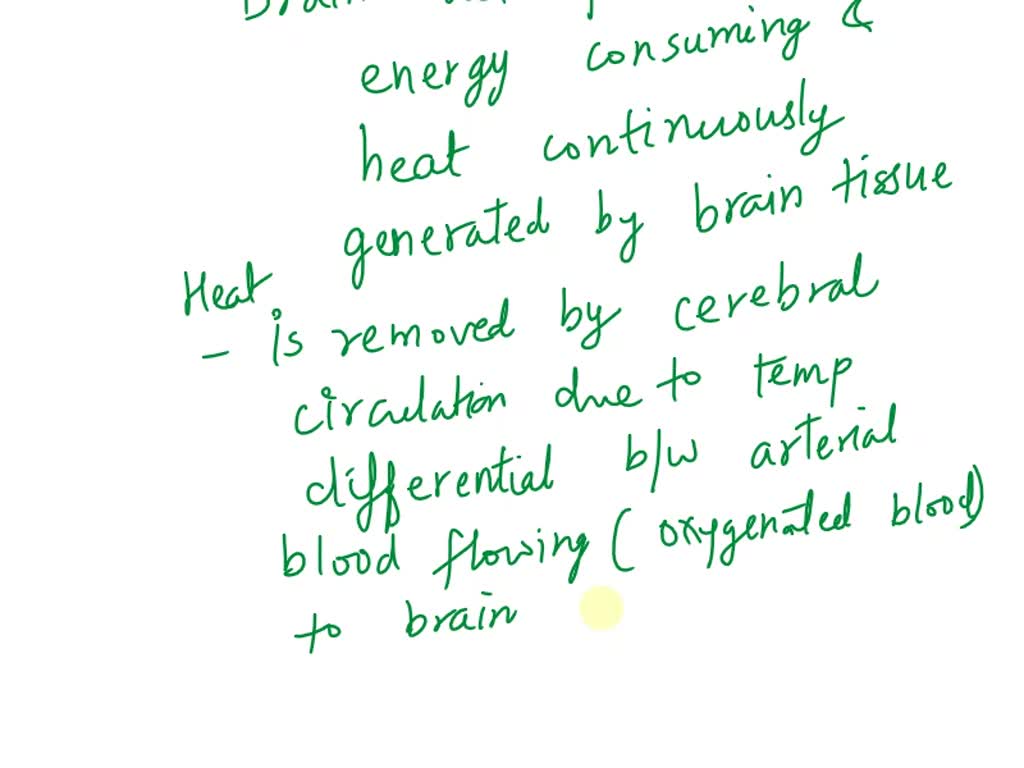 Brain
energy consuming &
heat continuously
generated by brain tissue
Heat
- is removed by cerebral
circulation due to temp
differential b/w arterial
blood flowing ( oxygenated blood)
to brain